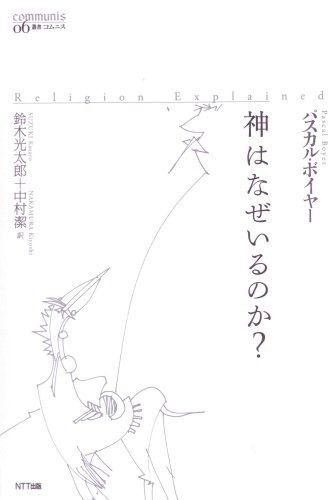 communis
06 叢書 コムニス
Religion Explained
パスカル・ボイヤー
Pascal Boyer
神はなぜいるのか?
鈴木光太郎+中村潔 訳
SUZUKI Kotaro
NAKAMURA Kiyoshi
NTT出版